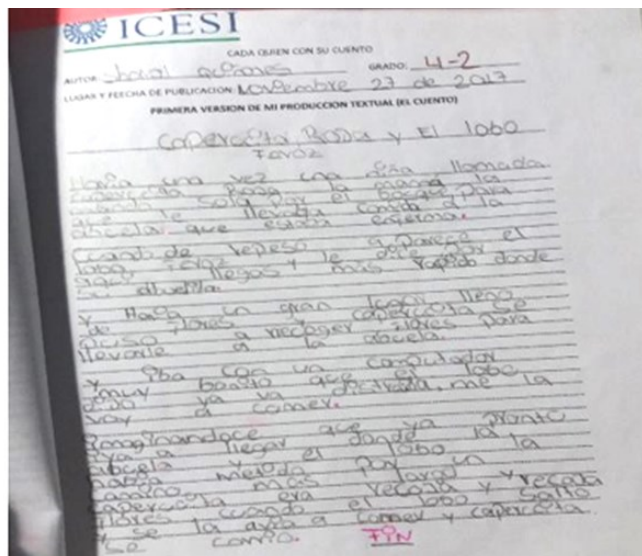 ICESI
CADA QUIEN CON SU CUENTO
AUTOR: GRADO: 4-2
LUGAR Y FEECHA DE PUBLICACIÓN: Noviembre 27 de 2017
PRIMERA VERSION DE MI PRODUCCIÓN TEXTUAL (EL CUENTO)
Capercita Roja y El lobo
Feroz
Había una vez una niña llamada
capercita Roja la mamá la
sola por el bosque para
que le llevara comida a la
abuela que estaba enferma.
Cuando de repeso aparece el
lobo Feroz y le dice por
aquí llegas más rapido donde
su abuelita
y Había un gran lugar lleno
de Flores y capercita se
puso a recoger Flores para
llevarle a la abuela.
y iba con un
muy bonito que el lobo
dijo ya va me la
voy a comer.
Imaginandoce que ya pronto
iva a llegar donde la
abuela y el lobo la
había metido por un
camino más largo y
capercita era recoja y recoja
Flores cuando el lobo salto
y se la a comer y capercita
se comio. FIN